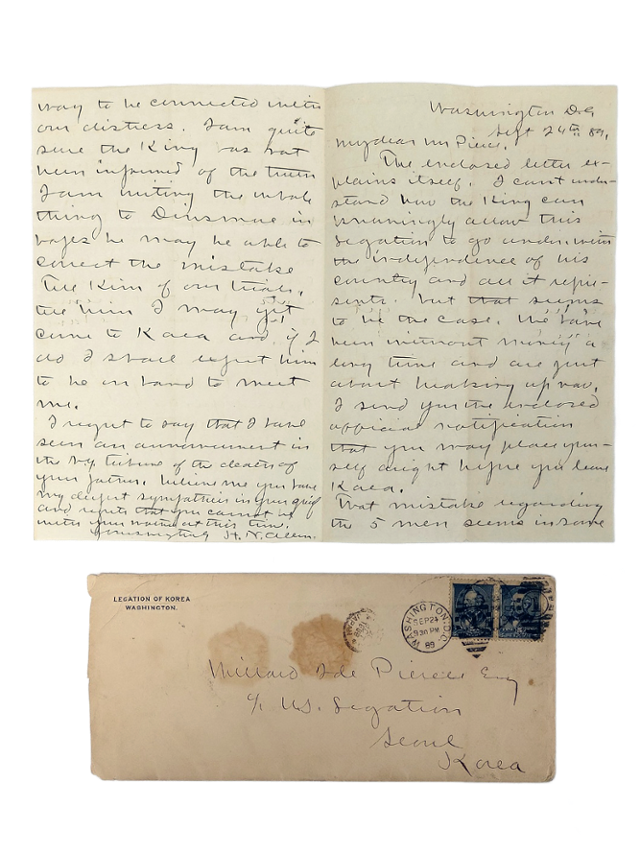 Washington D.C.
Sept 24th 89.
My dear Mr Pierce.
The enclosed letter ex-
plains itself. I cant under-
stand how the King can
allow this
Legation to go under with
the independence of his
country and all it repre-
sents. but that seems
to be the case. We have
been without money a
long time and are just
about breaking up now.
I send you the enclosed
official notification
that you may place your-
self aright before you leave
Korea.
That mistake regarding
the 5 men seems in some
way to be connected with
our distress. I am quite
sure the King has not
been informed of the truth
I am writing the whole
thing to Dinsmore in
hopes he may be able to
correct the mistake
Tell Kim of our trials.
tell him I may yet
come to Korea and if I
do I shall expect him
to be on hand to meet
me.
I regret to say that I have
seen an announcement in
the N.Y. Tribune of the death of
your father. Believe me you have
my deepest sympathies in your grief
and regrets that you cannot be
with your mother at this time.
H. N. Allen.
LEGATION OF KOREA
WASHINGTON.
WASHINGTON, D.C.
SEP 24
930 PM
89
Pierce Esq
c/o U.S. Legation
Seoul
Korea